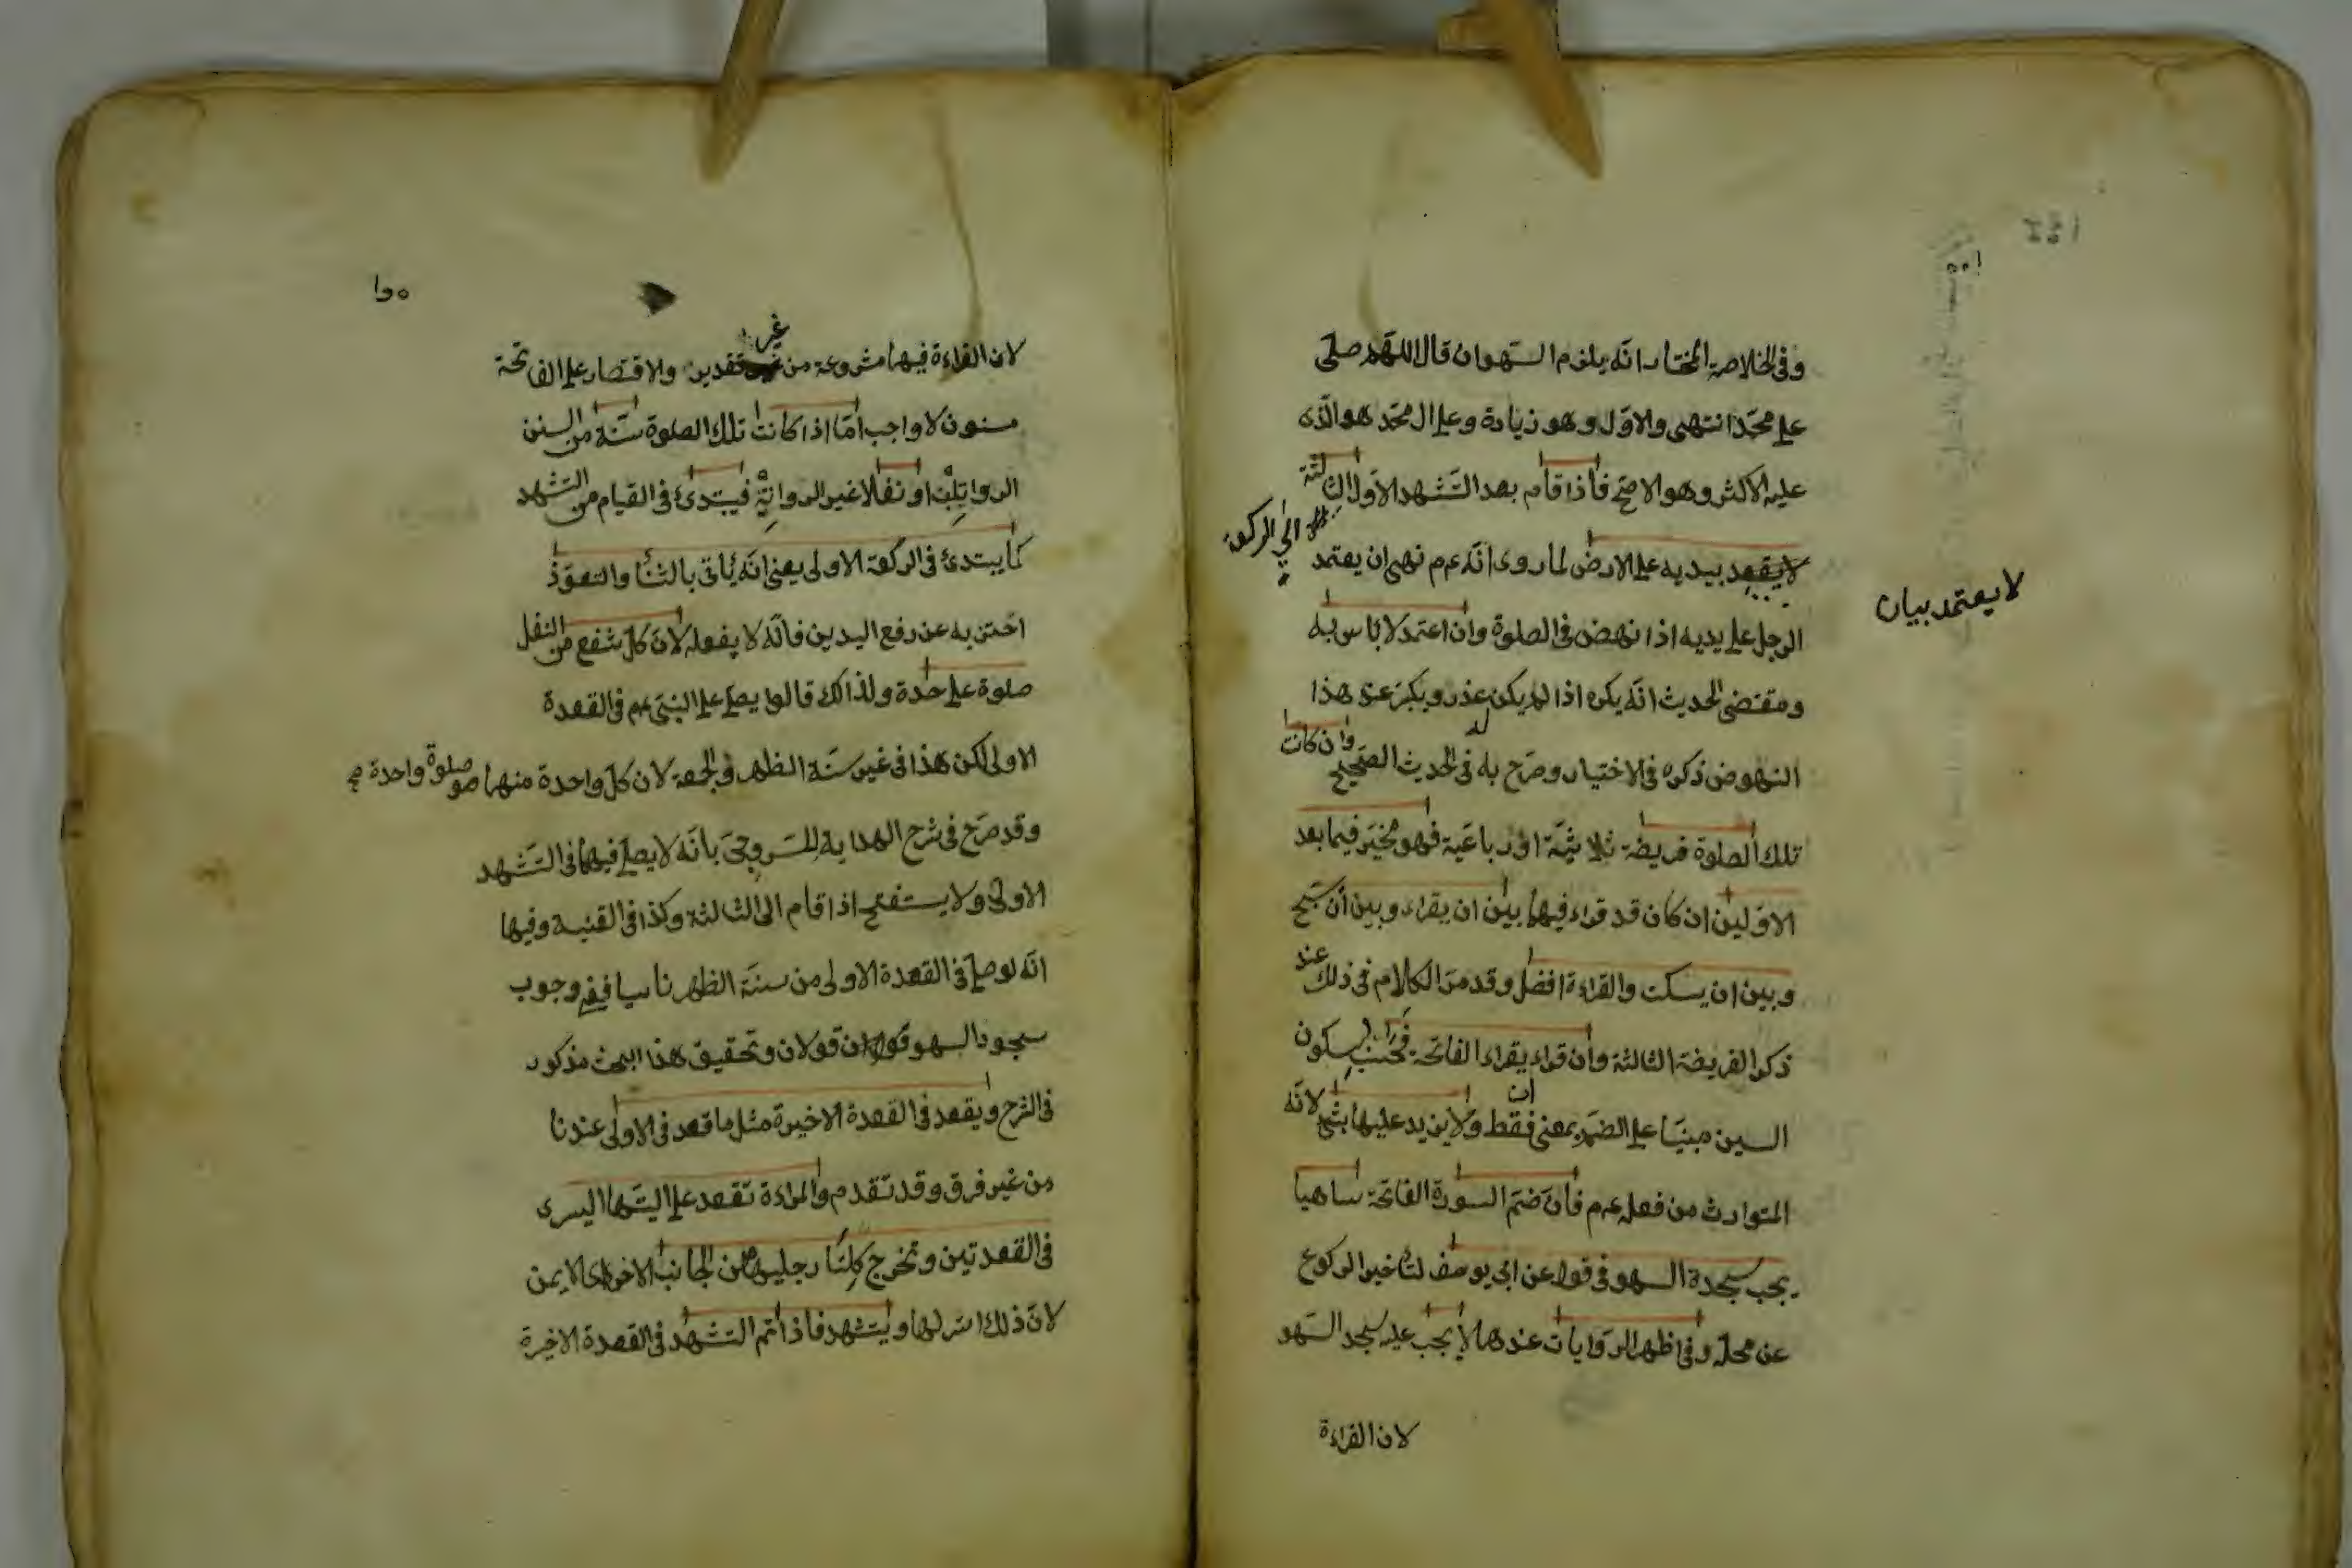 وفى الخلاصة المختار انه يلزم السهو ان قال اللهم صلى
على محمد انتهى والاول وهو زيادة وعلى ال محمد هو الذى
عليه الاكثر وهو الاصح فاذا قام بعد التشهد الاول الى الثالثة
الى الركعة
لا يقعد بيديه على الارض لما روى انه عم نهى ان يعتمد
لا يعتمد بيان
الرجل على يديه اذا نهض فى الصلوة وان اعتمد لا باس به
ومقتضى الحديث انه يكره اذا لم يكن له عذر ويكبر عند هذا
النهوض ذكره فى الاختيار وصرح به فى الحديث الصحيح وان كانت
تلك الصلوة فريضة ثلاثية او رباعية فهو مخير فيما بعد
الاوليين ان كان قد قراء فيهما بين ان يقراء وبين ان يسبح
وبين ان يسكت والقراءة افضل وقد مر الكلام فى ذلك عند
ذكر الفريضة الثالثة وان قراء يقراء الفاتحة فحسب بسكون
السين مبنيا على الضم بمعنى فقط ولا يزيد عليها بشئ لانه
المتوارث من فعله عم فان ضم السورة الفاتحة ساهيا
يجب سجدة السهو فى قول عن ابى يوسف لتأخير الركوع
عن محله وفى اظهر الروايات عندهما لا يجب عليه سجد السهو
لان القراءة
لان القراءة فيهما مشروعة من غير تقدير والاقتصار على الفاتحة
مسنون لا واجب اما اذا كانت تلك الصلوة سنة من السنن
الرواتب او نفلا غير الرواتب فيبتدئ فى القيام من التشهد
كما يبتدئ فى الركعة الاولى يعنى انه يأتى بالثنا والتعوذ
احتن به عن رفع اليدين فانه لا يفعله لان كل شفع من النفل
صلوة على حدة ولذالك قالوا يصلى على النبى عم فى القعدة
الاولى لكن هذا فى غير سنة الظهر والجمعة لان كل واحدة منهما صلوة واحدة صح
وقد صرح فى شرح الهداية للسروجى بانه لا يصلى فيهما فى التشهد
الاولى ولا يستفتح اذا قام الى الثالثة وكذا فى القنية وفيها
انه لو صلى فى القعدة الاولى من سنة الظهر ناسيا ففى وجوب
سجود السهو قولان وتحقيق هذا البحث مذكور
فى الشرح ويقعد فى القعدة الاخيرة مثل ما قعد فى الاولى عندنا
من غير فرق وقد تقدم والمراءة تقعد على اليتها اليسرى
فى القعدتين وتخرج كلتا رجليها من الجانب الاخر اى الايمن
لان ذلك استر لها ويتشهد فاذا اتم التشهد فى القعدة الاخيرة